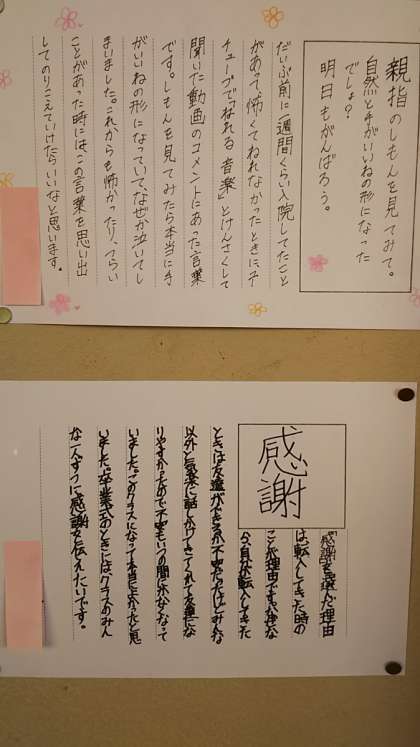 親指のしもんを見てみて。
自然と手がいいねの形になった
でしょ？
明日もがんばろう。
だいぶ前に一週間くらい入院してたこと
があって、怖くてねれなかったときにユー
チューブで「ねれる 音楽」とけんさくして
聞いた動画のコメントにあった言葉
です。しもんを見てみたら本当に手
がいいねの形になっていて、なぜか泣いてし
まいました。これからも怖かったり、つらい
ことがあった時には、この言葉を思い出
してのりこえていけたらいいなと思います。
感謝
「感謝」を選んだ理由
は、転入してきた時の
ことが理由です。なぜな
ら、自分が転入してきた
ときは友達ができるか不安だったけど、みんな
以外と気楽に話しかけてきてくれて友達にな
りやすかったので不安もいつの間に水なくなって
いました。このクラスになって本当に良かったと思
いました。卒業式のときには、クラスのみん
な一人ずつに感謝を伝えたいです。